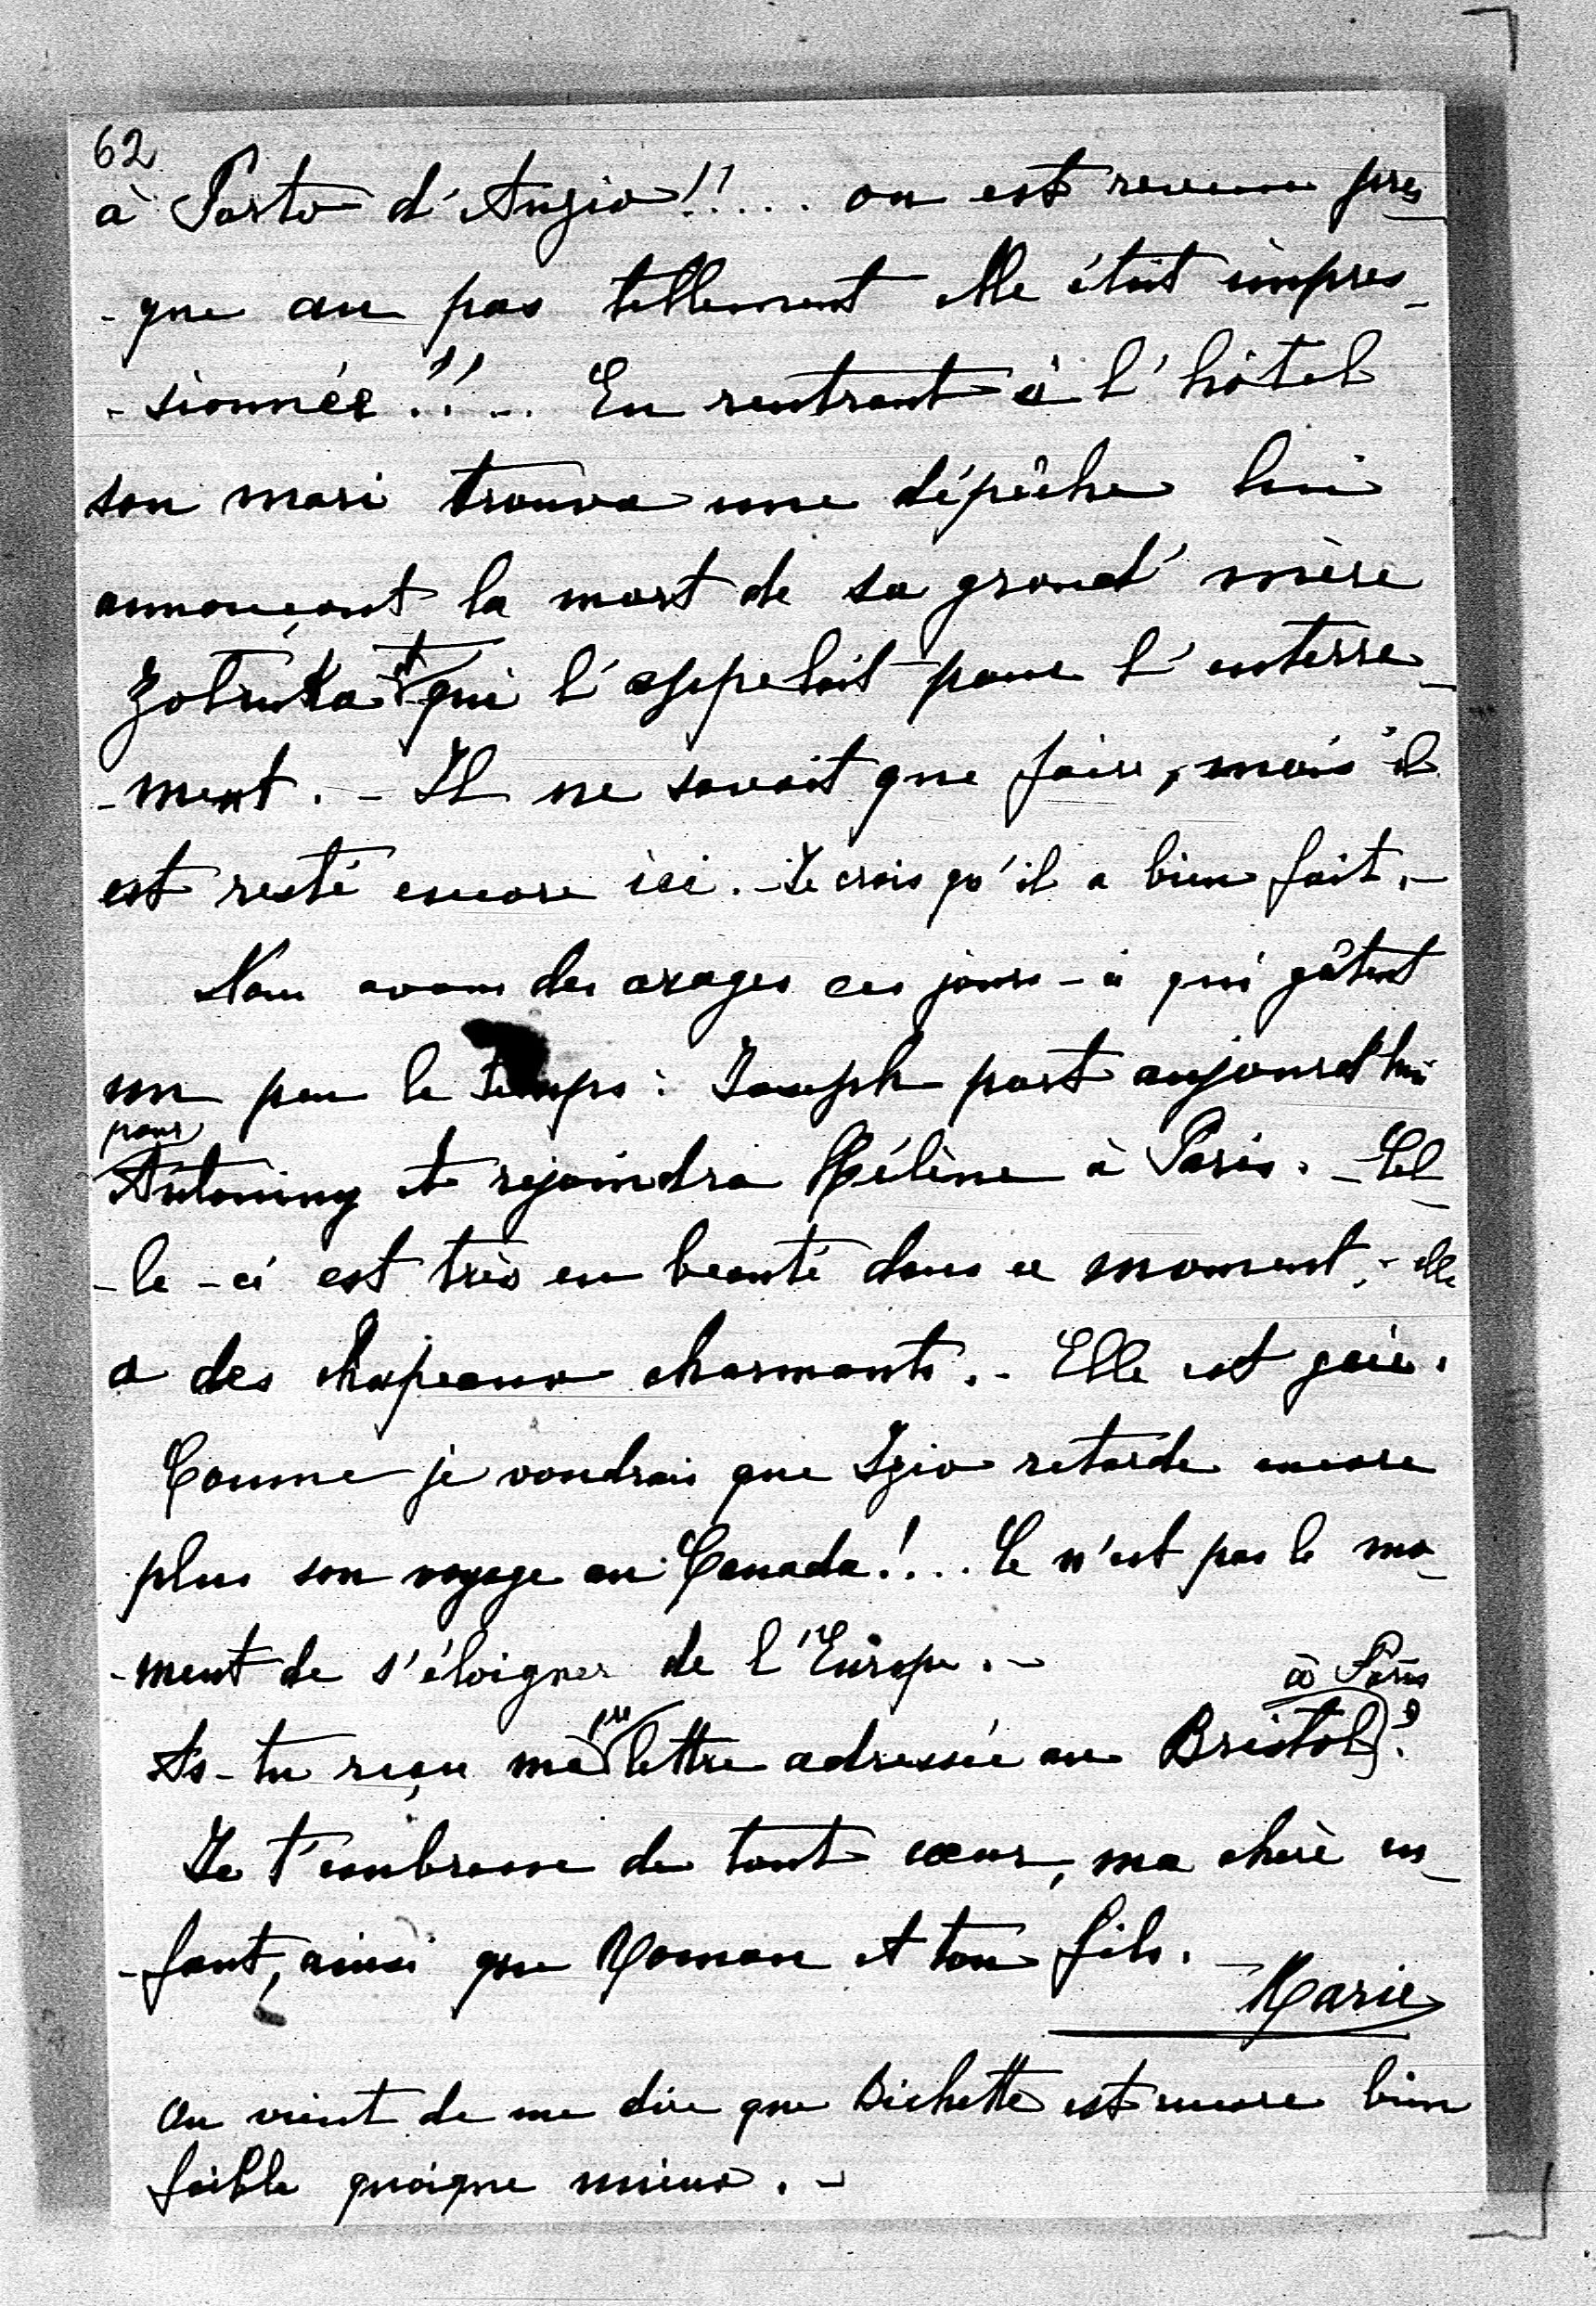 62
à Porto d'Anzio!!.... on est revenu pres
-que au pas tellement elle était impres-
-sionnée!!... En rentrant à l'hôtel
son mari trouva une dépêche lui
annonçant la mort de sa grand'mère
et qui l'appelait pour l'enterre-
-ment. - Il ne savait que faire, mais il
est resté encore ici. - Je crois qu'il a bien fait. -
Nous avons des orages ces jours-ci qui gâtent
un peu le temps: Joseph part aujourd'hui
pour
Antoniny et rejoindra Hélène à Paris. - Cel-
-le-ci est très en beauté dans ce moment; - elle
a des chapeaux charmants. - Elle est gaie.
Comme je voudrais que Izio retarde encore
plus son voyage au Canada!... Ce n'est pas le mo-
-ment de s'éloigner de l'Europe. -
à Paris
As-tu reçu ma lettre adressée au Bristol?
Je t'embrasse de tout cœur, ma chère en-
-fant, ainsi que Roman et ton fils. -
Marie
On vient de me dire que Bichette est encore bien
faible quoique mieux. -